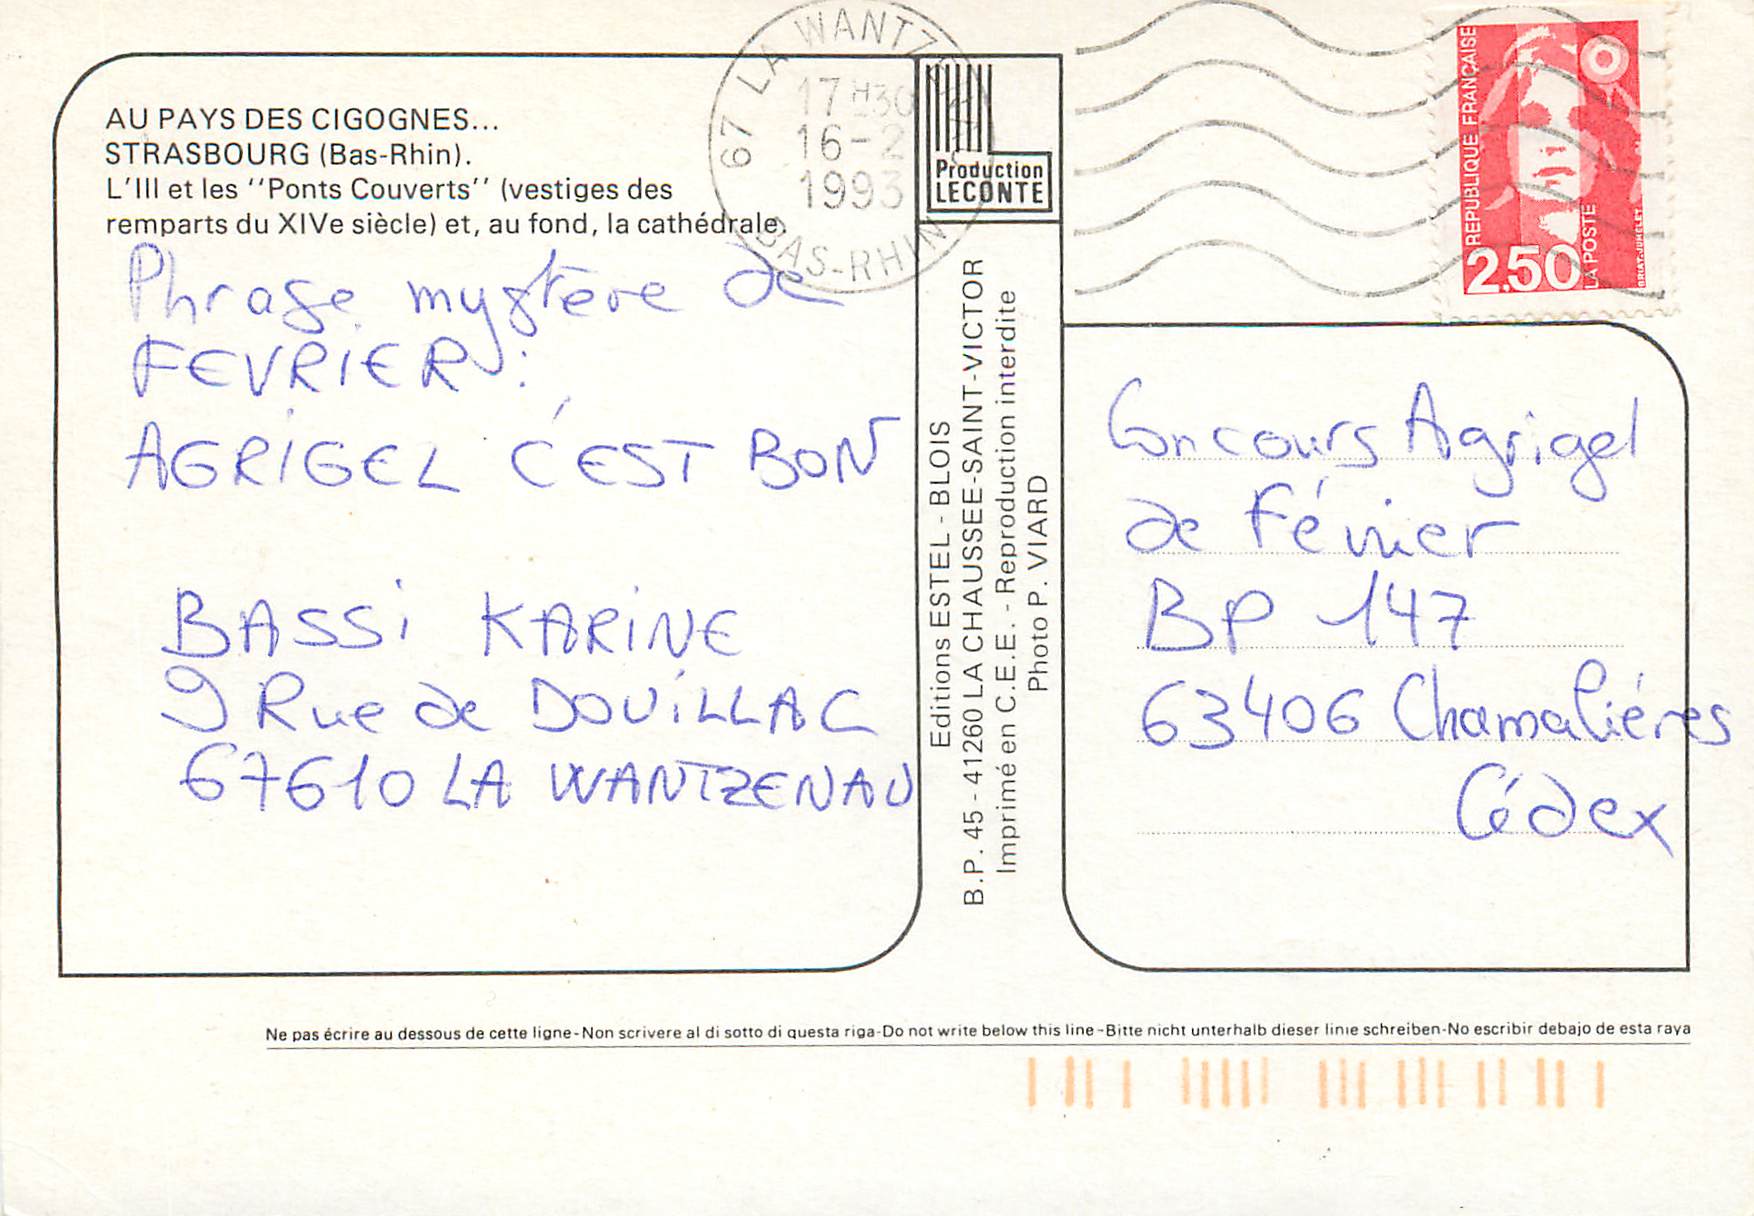 AU PAYS DES CIGOGNES...
STRASBOURG (Bas-Rhin).
L'Ill et les ''Ponts Couverts'' (vestiges des
remparts du XIVe siècle) et, au fond, la cathédrale.
Phrase mystère de
FEVRIER :
AGRIGEL C'EST BON
BASSI KARINE
9 Rue de DOUILLAC
67610 LA WANTZENAU
67 LA WANTZENAU
17 H30
16-2
1993
BAS-RHIN
Production
LECONTE
Editions ESTEL - BLOIS
B.P. 45 - 41260 LA CHAUSSEE-SAINT-VICTOR
Imprimé en C.E.E. - Reproduction interdite
Photo P. VIARD
REPUBLIQUE FRANÇAISE
2.50
LA POSTE
BRIAT-JUMELET
Concours Agrigel
de Février
BP 147
63406 Chamaliéres
Cédex
Ne pas écrire au dessous de cette ligne-Non scrivere al di sotto di questa riga-Do not write below this line-Bitte nicht unterhalb dieser linie schreiben-No escribir debajo de esta raya